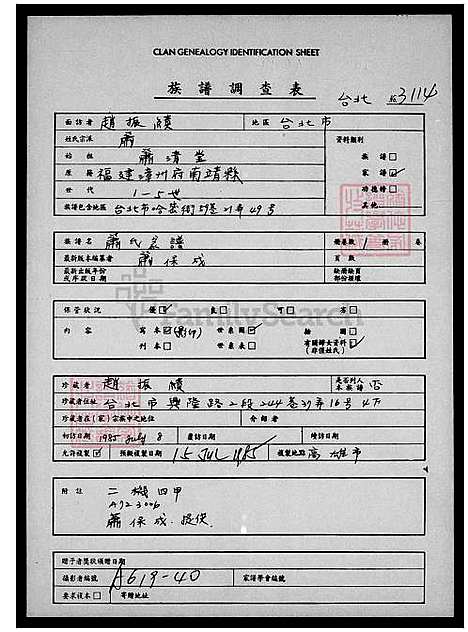 CLAN GENEALOGY IDENTIFICATION SHEET
族譜調查表
台北 № 3114
面訪者 趙振績 地區 台北市
姓氏宗派 蕭 資料類別
始祖 蕭清堂 族譜□
原籍 福建漳州府南靖縣 家譜☑
世代 1-5世 功德譜□
族譜包含地區 台北市哈密街59巷21弄49号 其他
族譜名 蕭氏家譜 冊卷數 1 冊 卷
最新版本編纂者 蕭保成 頁數
最新出版年份或序跋日期 缺冊缺頁部份補壞
保管狀況 優☑ 良□ 可□ 劣□
內容 寫本☑(影印) 世系圖☑ 繪圖□
刊本□ 世系表□ 有關婦女資料☑(非僅姓氏)
FamilySearch
珍藏者 趙振績 是否列入本族譜 否
珍藏者住址 台北市興隆路2段244巷37弄16号4F
珍藏者在(家)宗族中之地位 介紹者
初訪日期 1985 July 8 重訪日期 續訪日期
允許複製☑ 預擬複製日期 15 JUL 1985 複製地點 高雄市
附註 二機四甲
A72-3006
蕭保成提供
贈予者獎狀頒贈日期
攝影者編號 A619-40 家譜學會編號
要求複本□ 寄贈地址